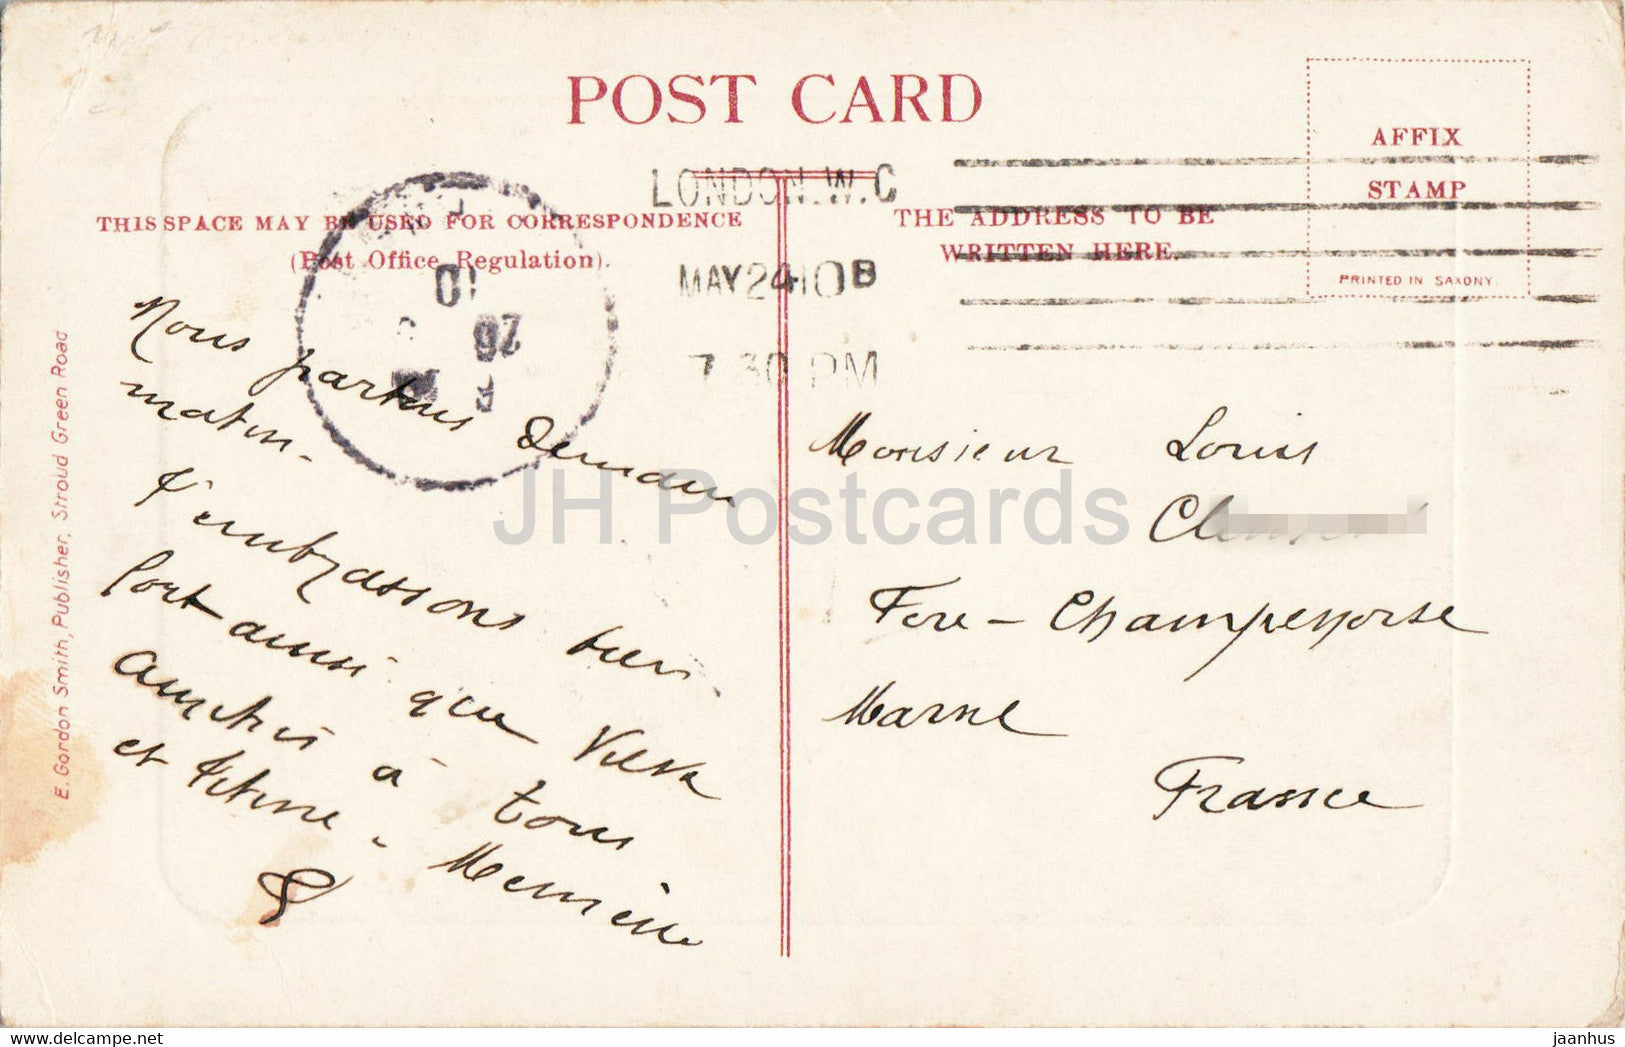 POST CARD
AFFIX
STAMP
PRINTED IN SAXONY.
LONDON.W.C
MAY 24 10 B
7.30 PM
THIS SPACE MAY BE USED FOR CORRESPONDENCE
(Post Office Regulation).
THE ADDRESS TO BE
WRITTEN HERE.
10
26
E. Gordon Smith, Publisher, Stroud Green Road
Nous partons demain
matin.
T'embrassons bien
fort aussi que
amitiés à tous
et
Monsieur Louis
Fère-Champenoise
Marne
France
JH Postcards
hippostcard.com
jaanhus